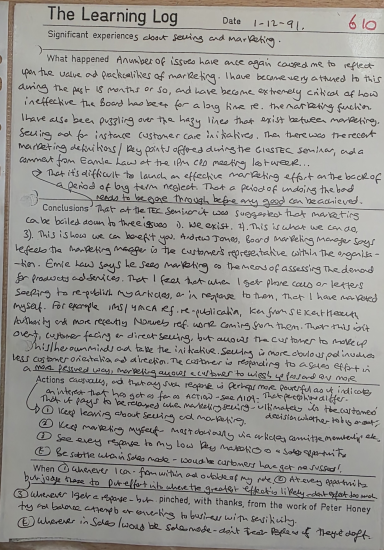 The Learning Log Date 1-12-91. 610
Significant experiences about selling and marketing.
What happened A number of issues have once again caused me to reflect
upon the value and practicalities of marketing. I have become very attuned to this
during the past 18 months or so, and have become extremely critical of how
ineffective the Board has been for a long time re. the marketing function.
I have also been puzzling over the hazy lines that exist between marketing,
Selling and for instance customer care initiatives. Then there was the recent
marketing definitions / key points offered during the seminar, and a
comment from Ernie Law at the IPM CPD meeting last week...
That it's difficult to launch an effective marketing effort on the back of
a period of big term neglect. That a period of undoing the bad
needs to be gone through before any good can be achieved.
Conclusions That at the TEC Seminar it was suggested that marketing
can be boiled down to three issues 1). We exist. 2). This is what we can do,
3). This is how we can benefit you. Andrew Jones, Board Marketing Manager says
he feels the marketing manager is the customer's representative within the organisa-
-tion. Ernie Law says he sees marketing as the means of assessing the demand
for products and services. That I feel that when I get phone calls or letters
seeking to re-publish my articles, or in response to them, that I have marketed
myself. For example IMS / YMCA ref. re-publication, Ken from S E Kent Health
Authority and most recently ref. work coming from them. That this isn't
overt, customer facing or direct selling, but allows the customer to make up
his/her own minds and take the initiative. Selling is more obvious and involves
less customer orientation and direction. The customer is responding to a sales effort in
a more pressured way, marketing allows a customer to weigh up for and
Actions causally, and that any such response is perhaps more powerful as it indicates
an interest that has got as far as action - see A109. That
that it pays to be relaxed when marketing selling - ultimately it's the customer's
decision whether to buy or not.
① Keep learning about selling and marketing.
② Keep marketing myself - most obviously via articles, committee etc.
③ See every response to my low key marketing as a sales opportunity
④ Be subtle when in Sales mode - would be customers have got me sussed!
When ① Whenever I can - from within and outside of my role ② At every opportunity
but judge those to put effort into where the greatest effect is likely - don't
③ Whenever I get a response - but pinched, with thanks, from the work of Peter Honey
try and balance attempts at converting to business with sensitivity.
④ Whenever in Sales / would be Sales mode - don't people off they'd